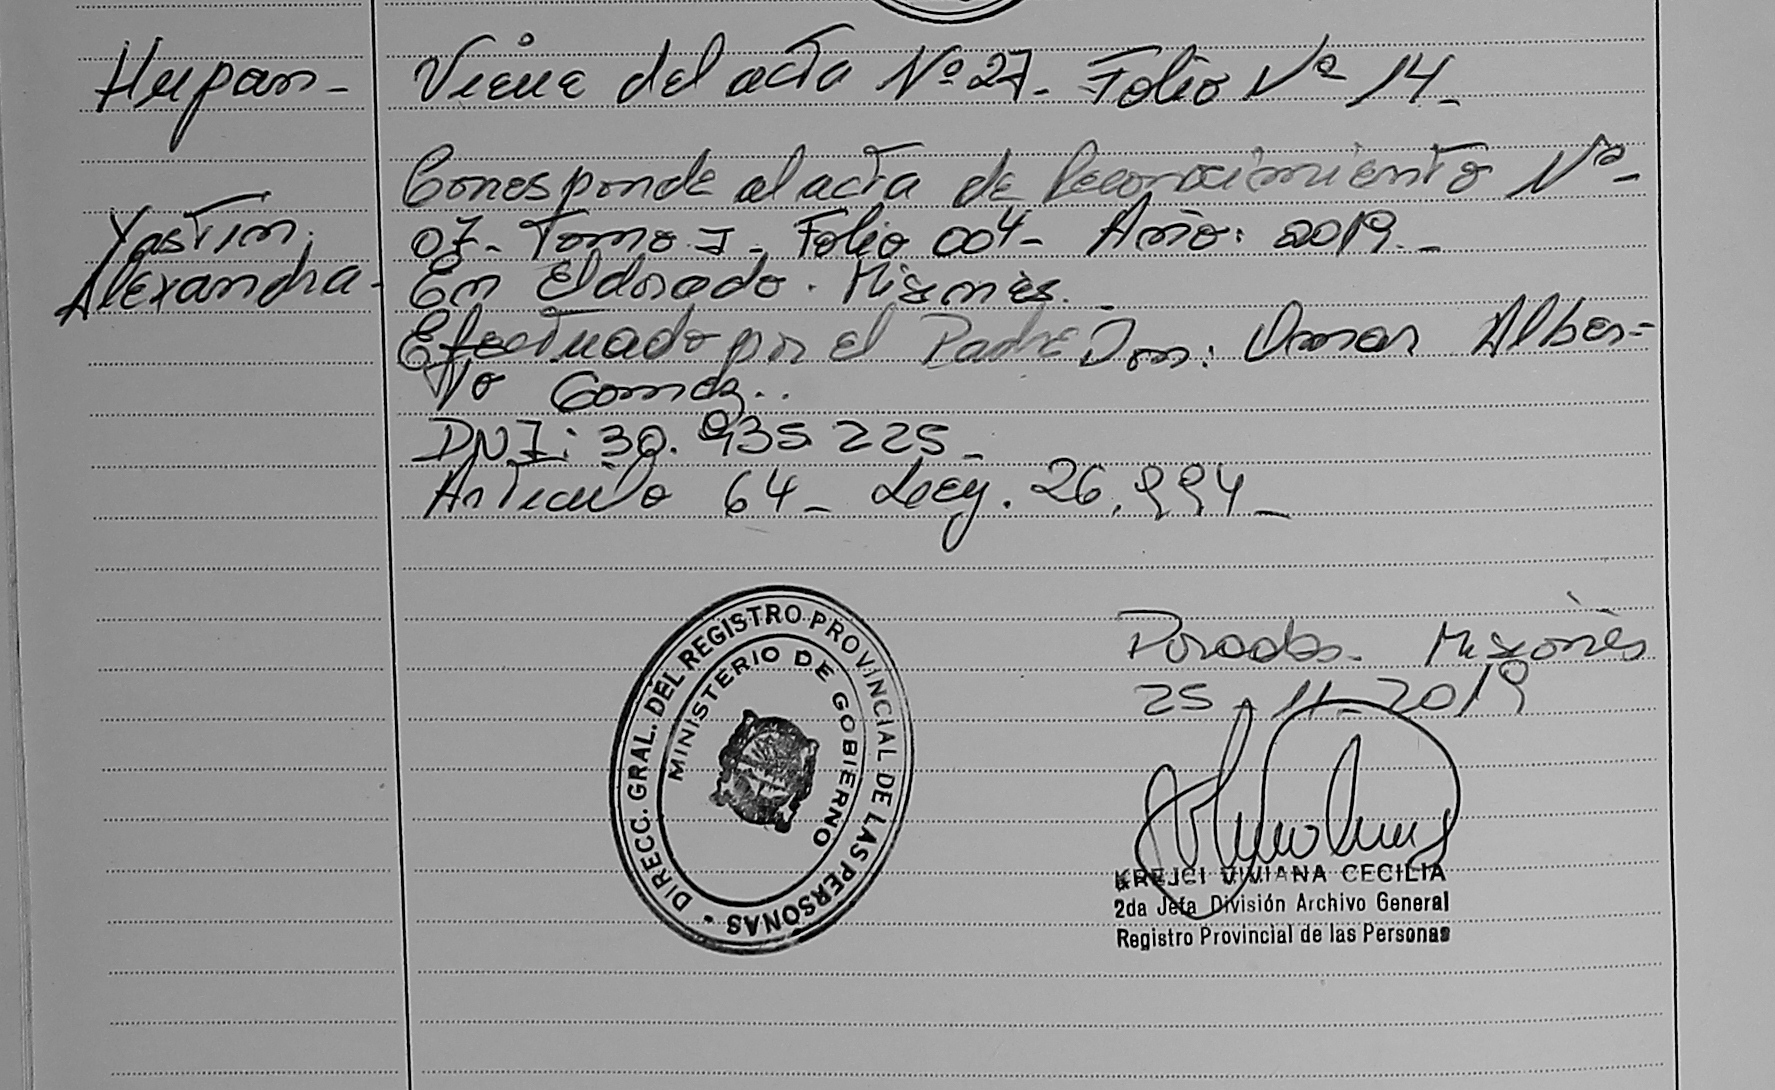 Hupan-
Viene del acta Nº 27- Folio Nº 14-
Corresponde al acta de Reconocimiento Nº-
Yastim
Alexandra-
07- Tomo I- Folio 004- Año: 2019.-
En Eldorado. Misiones.
Efectuado por el Padre Don: Omar Alber=
to Gomez..
DNI: 30.935 225-
Articulo 64- Ley. 26.994-
DIRECC. GRAL. DEL REGISTRO PROVINCIAL DE LAS PERSONAS
MINISTERIO DE GOBIERNO
Posadas. Misiones
25-11-2019
KREJCI VIVIANA CECILIA
2da Jefa División Archivo General
Registro Provincial de las Personas